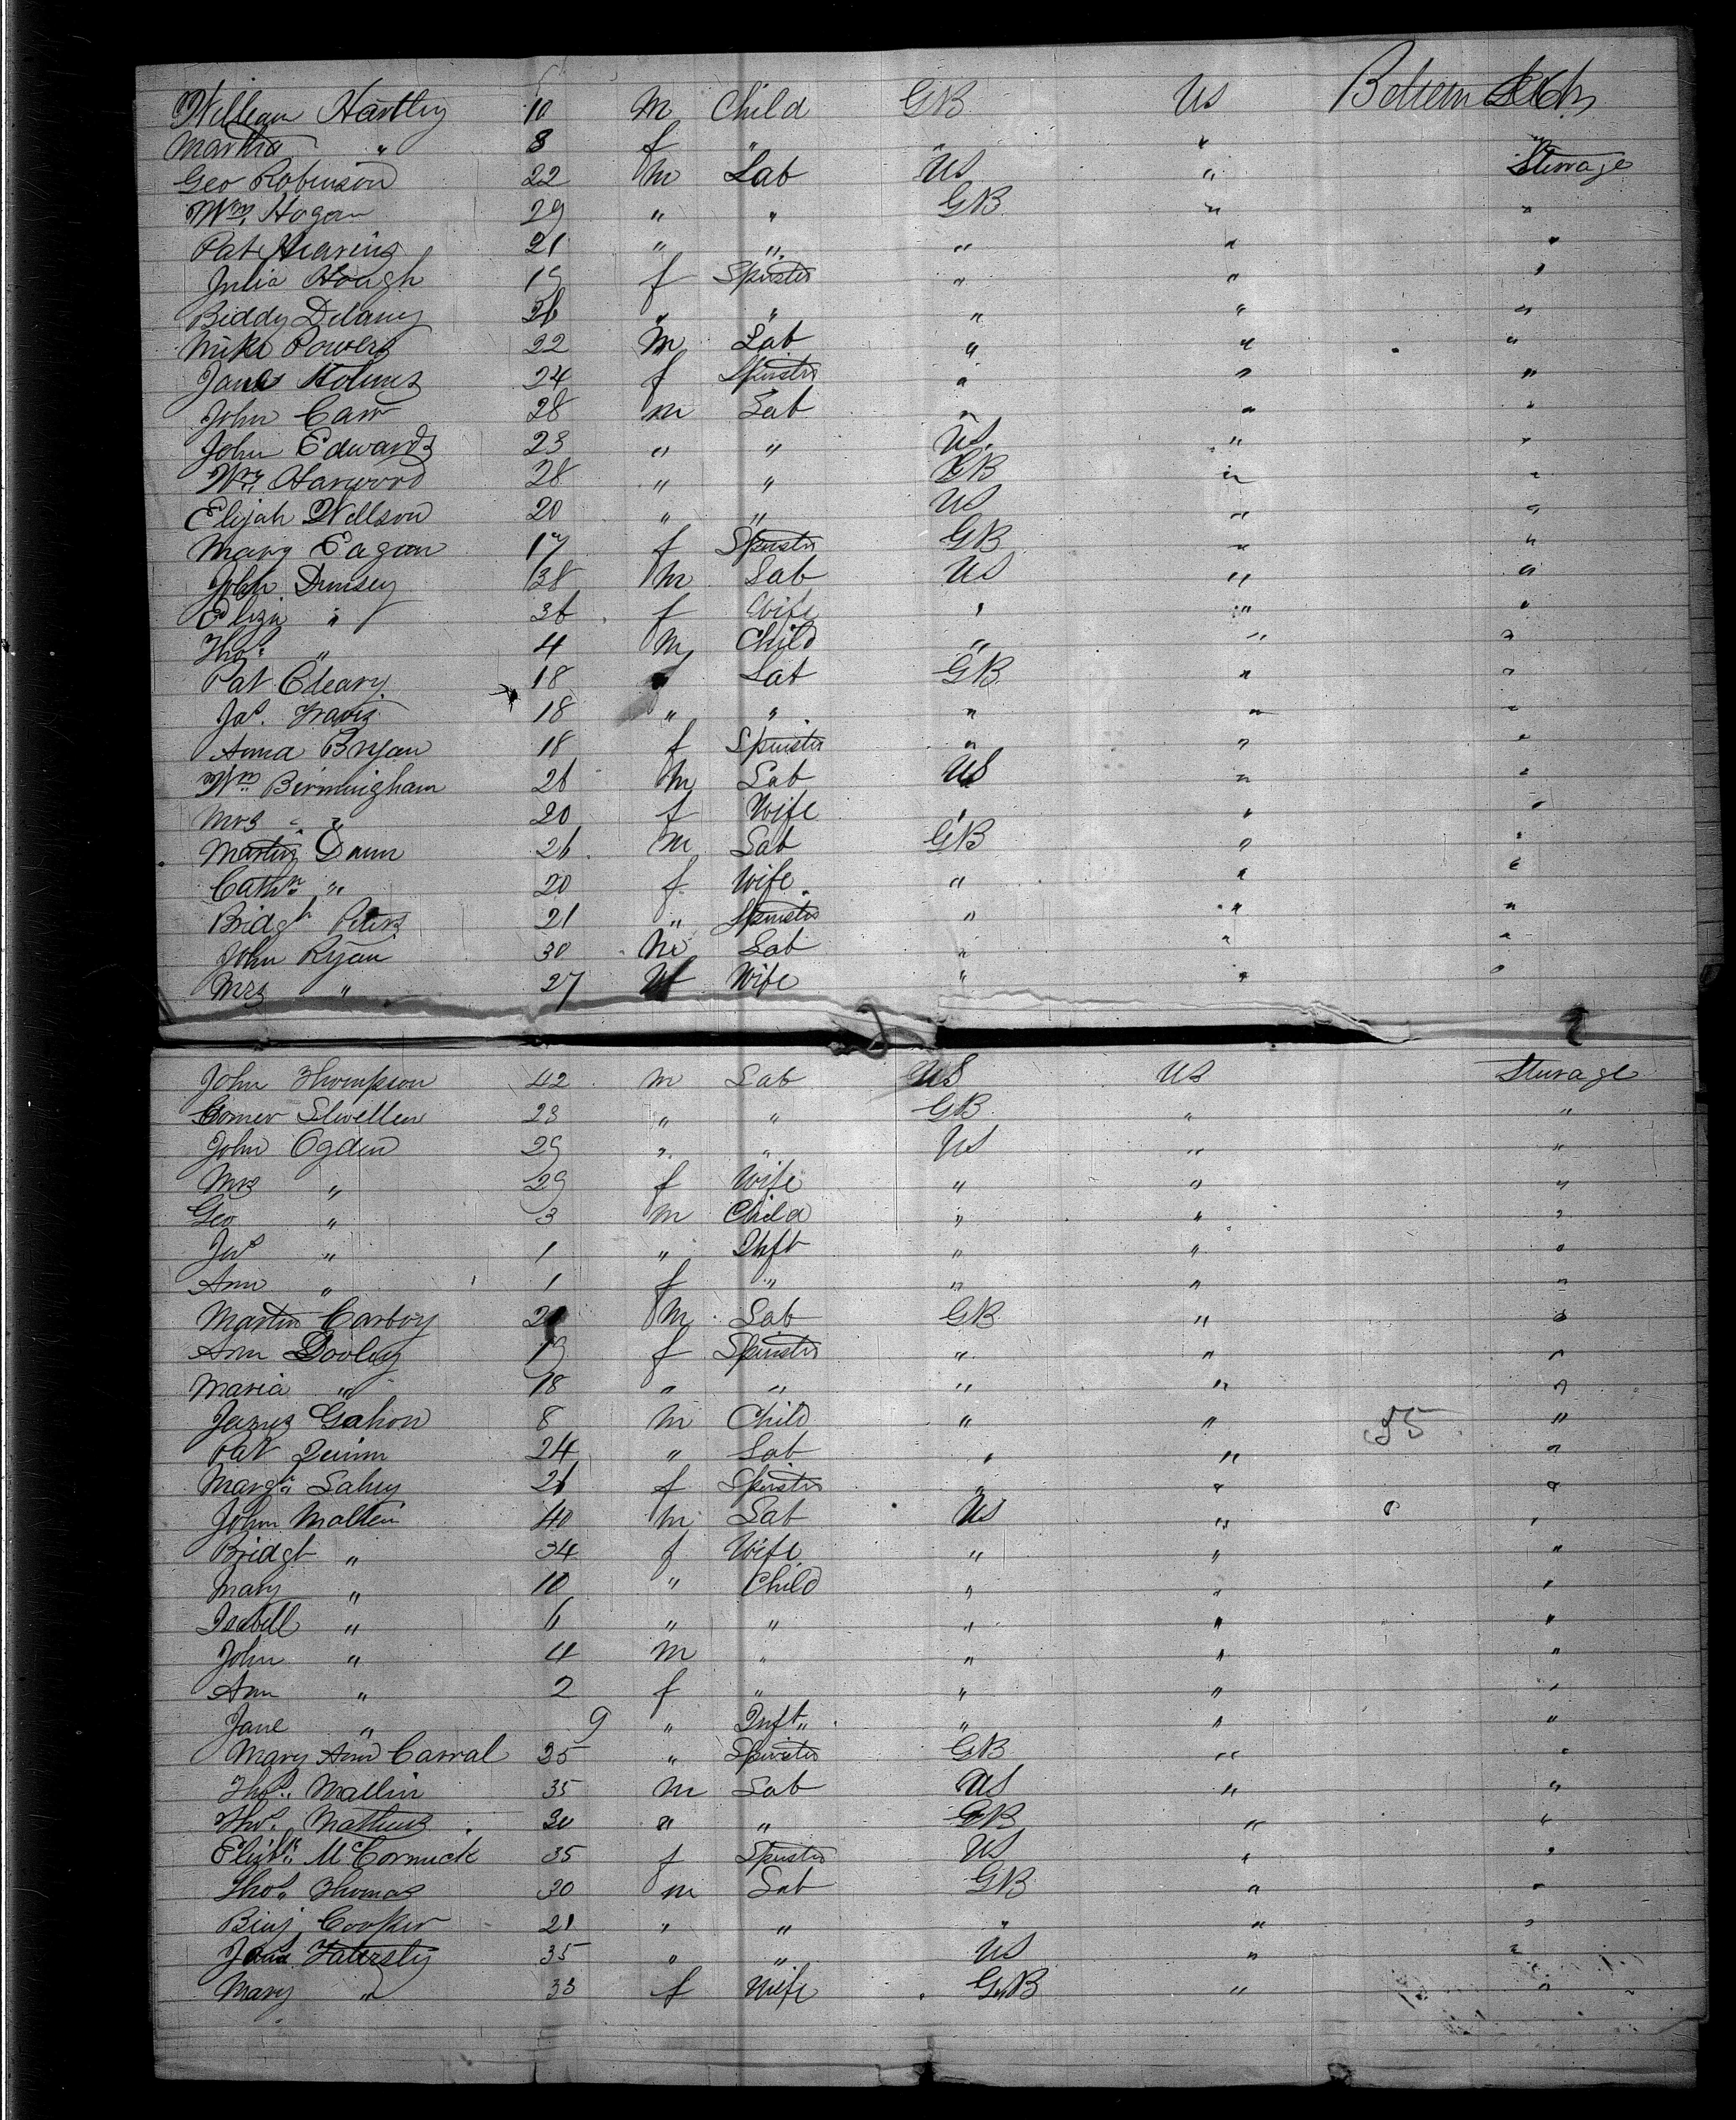 William Hartley 10 M Child GB US Between Decks
Martha " 8 f " " "
Geo Robinson 22 m Lab US " Sterrage
Wm Hogan 29 " " GB " "
Pat 21 " " " " "
Julia Hough 19 f Spinster " " "
Biddy Delany 26 " " " " "
Mike Powers 22 M Lab " " "
Jane Holmes 24 f Spinster " " "
John Carr 28 m Lab " " "
John Edwards 23 " " US. " "
Wm Harwood 28 " " GB " "
Elijah Wellson 20 " " US " "
Mary Eagan 17 f Spinster GB " "
John Dumsey 38 m Lab US " "
Eliza " 36 f Wife " " "
Thos " 4 m Child " " "
Pat Cleary 18 " Lab GB " "
Jas. Travis 18 " " " " "
Anna Bryan 18 f Spinster " " "
Wm Birmingham 26 m Lab US " "
Mrs " 20 f Wife " " "
Martin Dunn 26 m Lab GB " "
Cathn " 20 f Wife " " "
Bridgt Peters 21 " Spinster " " "
John Ryan 30 m Lab " " "
Mrs " 27 f Wife " " "
2
John Thompson 42 m Lab US US Sterrage
Gomer Llwellen 23 " " GB " "
John Ogden 29 " " US " "
Mrs " 29 f Wife " " "
Geo " 3 m Child " " "
Jos " 1 " Inft " " "
Ann " 1 f " " " "
Martin Carboy m Lab GB " "
Ann Dooley 19 f Spinster " " "
Maria " 18 " " " " "
James Gahon 8 m Child " " 55 "
Pat Quinn 24 " Lab " " "
Margt Lahey 26 f Spinster " " "
John Mallen 40 m Lab US " "
Bridgt " 34 f Wife " " "
Mary " 10 " Child " " "
Isabell " 6 " " " " "
John " 4 m " " " "
Ann " 2 f " " " "
Jane " 9 " Inft " " "
Mary Ann Carral 25 " Spinster GB " "
Thos. Mallin 35 m Lab US " "
Thos. Mathews 30 " " GB " "
Elizth McCormick 35 f Spinster US " "
Thos. Thomas 30 m Lab GB " "
Binj Cooker 21 " " " " "
Jas 35 " " US " "
Mary " 33 f Wife GB " "